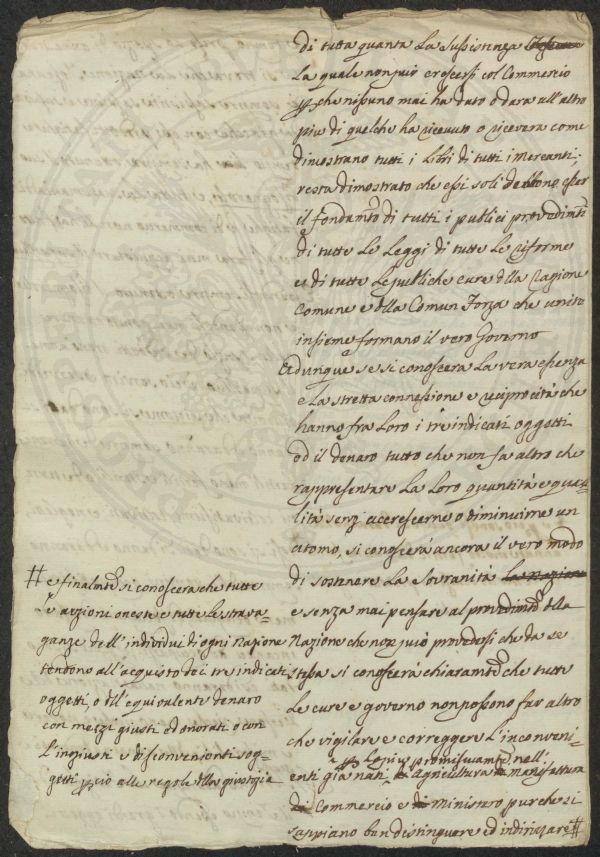 di tutta quanta la sussistenza
la quale non può crescersi col Commercio
che nissuno mai ha dato o dara all'altro
più di quelche ha ricevuto o ricevera come
dimostrano tutti i libri di tutti i mercanti,
resta dimostrato che essi soli debbono esser
il fondamto di tutti i publici provedimti
di tutte le leggi di tutte le riforme
e di tutte le publiche cure della Ragione
Comune e della Comun Forza che unite
insieme formano il vero Governo
E dunque se si conoscera la vera essenza
e la stretta connessione e reciprocità che
hanno fra loro i tre indicati oggetti
ed il denaro tutto che non fa altro che
rappresentare la loro quantità e qua-
lità senz'accrescerne o diminuirne un
atomo, si conoscerà ancora il vero modo
di sostenere la Sovranità la nazione
e senza mai pensare al provedimto della
Nazione che non può provedersi che da se
stessa si conoscerà chiaramte che tutte
le cure e governo non possono far altro
che vigilare e correggere l'inconveni-
enti già nati
nell'
Agricoltura manifattura
Commercio e ministero purche si
sappiano ben distinguere ed indirizzare #
# e finalmte si conoscera che tutte
l'azzioni oneste e tutte le strava-
ganze dell'individui di ogni nazione
tendono all'acquisto de i tre indicati
oggetti, o dell'equivalente denaro
con mezzi giusti ed onorati o con
l'ingiusti e disconvenienti sog-
getti alle regole della giustizia